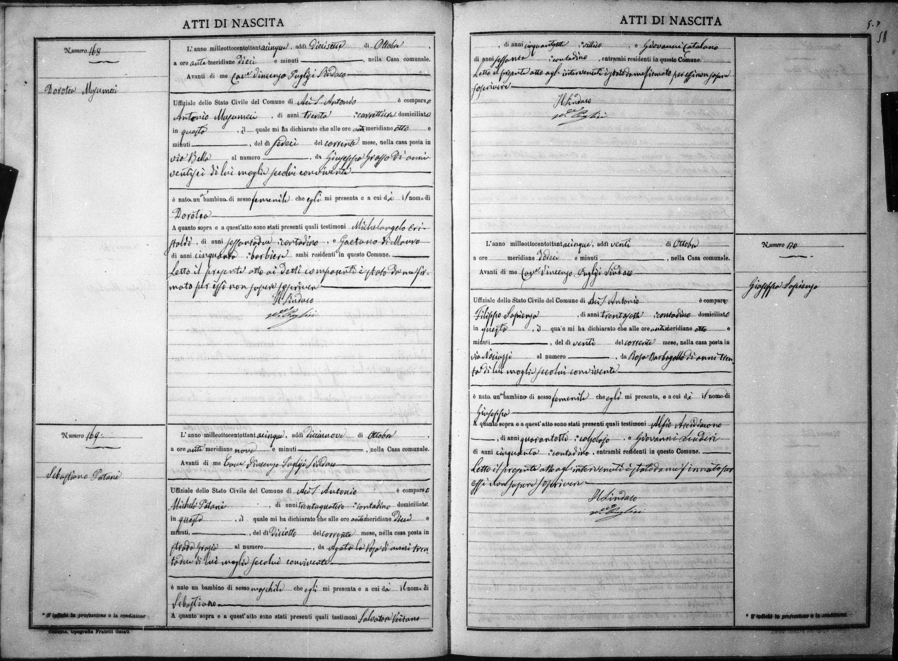 ATTI DI NASCITA
Numero 168
Dorotea
L'anno milleottocentottantacinque, addì diciasette di Ottobre,
a ore anti meridiane dieci e minuti, nella Casa comunale.
Avanti di me Cav. Vincenzo Puglisi Sindaco
Uffiziale dello Stato Civile del Comune di Aci S. Antonio è comparso
Antonio, di anni trenta carrettiere domiciliato
in questo, il quale mi ha dichiarato che alle ore anti meridiane otto e
minuti, del dì sedici del corrente mese, nella casa posta in
via Bella al numero, da Giuseppa Grasso di anni
ventisei di lui moglie secolui convivente
è nato un bambino di sesso femenile che egli mi presenta e a cui dà il nome di
Dorotea
A quanto sopra e a quest'atto sono stati presenti quali testimoni Michelangelo Cri-
staldi, di anni sessantadue contadino, e Gaetano di Mauro
di anni cinquanta barbiere ambi residenti in questo Comune.
Letto il presente atto ai detti componenti è stato da me fir-
mato per essi non sapere scrivere
Il Sindaco
Puglisi
Numero 169
Sebastiano Patanè
L'anno milleottocentottantacinque, addì diciannove di Ottobre,
a ore anti meridiane nove e minuti, nella Casa comunale.
Avanti di me Cav. Vincenzo Puglisi Sindaco
Uffiziale dello Stato Civile del Comune di Aci S. Antonio è comparso
Michele Patanè, di anni trentaquattro contadino domiciliato
in questo, il quale mi ha dichiarato che alle ore anti meridiane dieci e
minuti, del dì diciotto del corrente mese, nella casa posta in
strada al numero, da Agata La Rosa di anni tren-
tadue di lui moglie secolui convivente
è nato un bambino di sesso maschile che egli mi presenta e a cui dà il nome di
Sebastiano
A quanto sopra e a quest'atto sono stati presenti quali testimoni Salvatore
* Si indichi la professione o la condizione
Catania, tipografia Fratelli Galati
ATTI DI NASCITA
58
, di anni cinquantasette, e Giovanni Catalano
di anni sessanta contadino, entrambi residenti in questo Comune.
Letto il presente atto agl'intervenuti è stato da me firmato per essi non sapere
scrivere
Il Sindaco
Puglisi
L'anno milleottocentottantacinque, addì venti di Ottobre,
a ore meridiane dieci e minuti, nella Casa comunale.
Avanti di me Cav. Vincenzo Puglisi Sindaco
Uffiziale dello Stato Civile del Comune di Aci S. Antonio è comparso
Filippo Sapienza, di anni trentasette contadino domiciliato
in questo, il quale mi ha dichiarato che alle ore anti meridiane otto e
minuti, del dì venti del corrente mese, nella casa posta in
via al numero, da Rosa Barbagallo di anni tren-
ta di lui moglie secolui convivente
è nato un bambino di sesso femenile che egli mi presenta, e a cui dà il nome di
Giuseppa
A quanto sopra e a quest'atto sono stati presenti quali testimoni Alfio Arcidiacono
, di anni quarantotto, e Giovanni
di anni cinquanta contadino, entrambi residenti in questo Comune.
Letto il presente atto agl'intervenuti è stato da me firmato per
essi non sapere scrivere
Il Sindaco
Puglisi
Numero 170
Giuseppa Sapienza
* Si indichi la professione o la condizione.